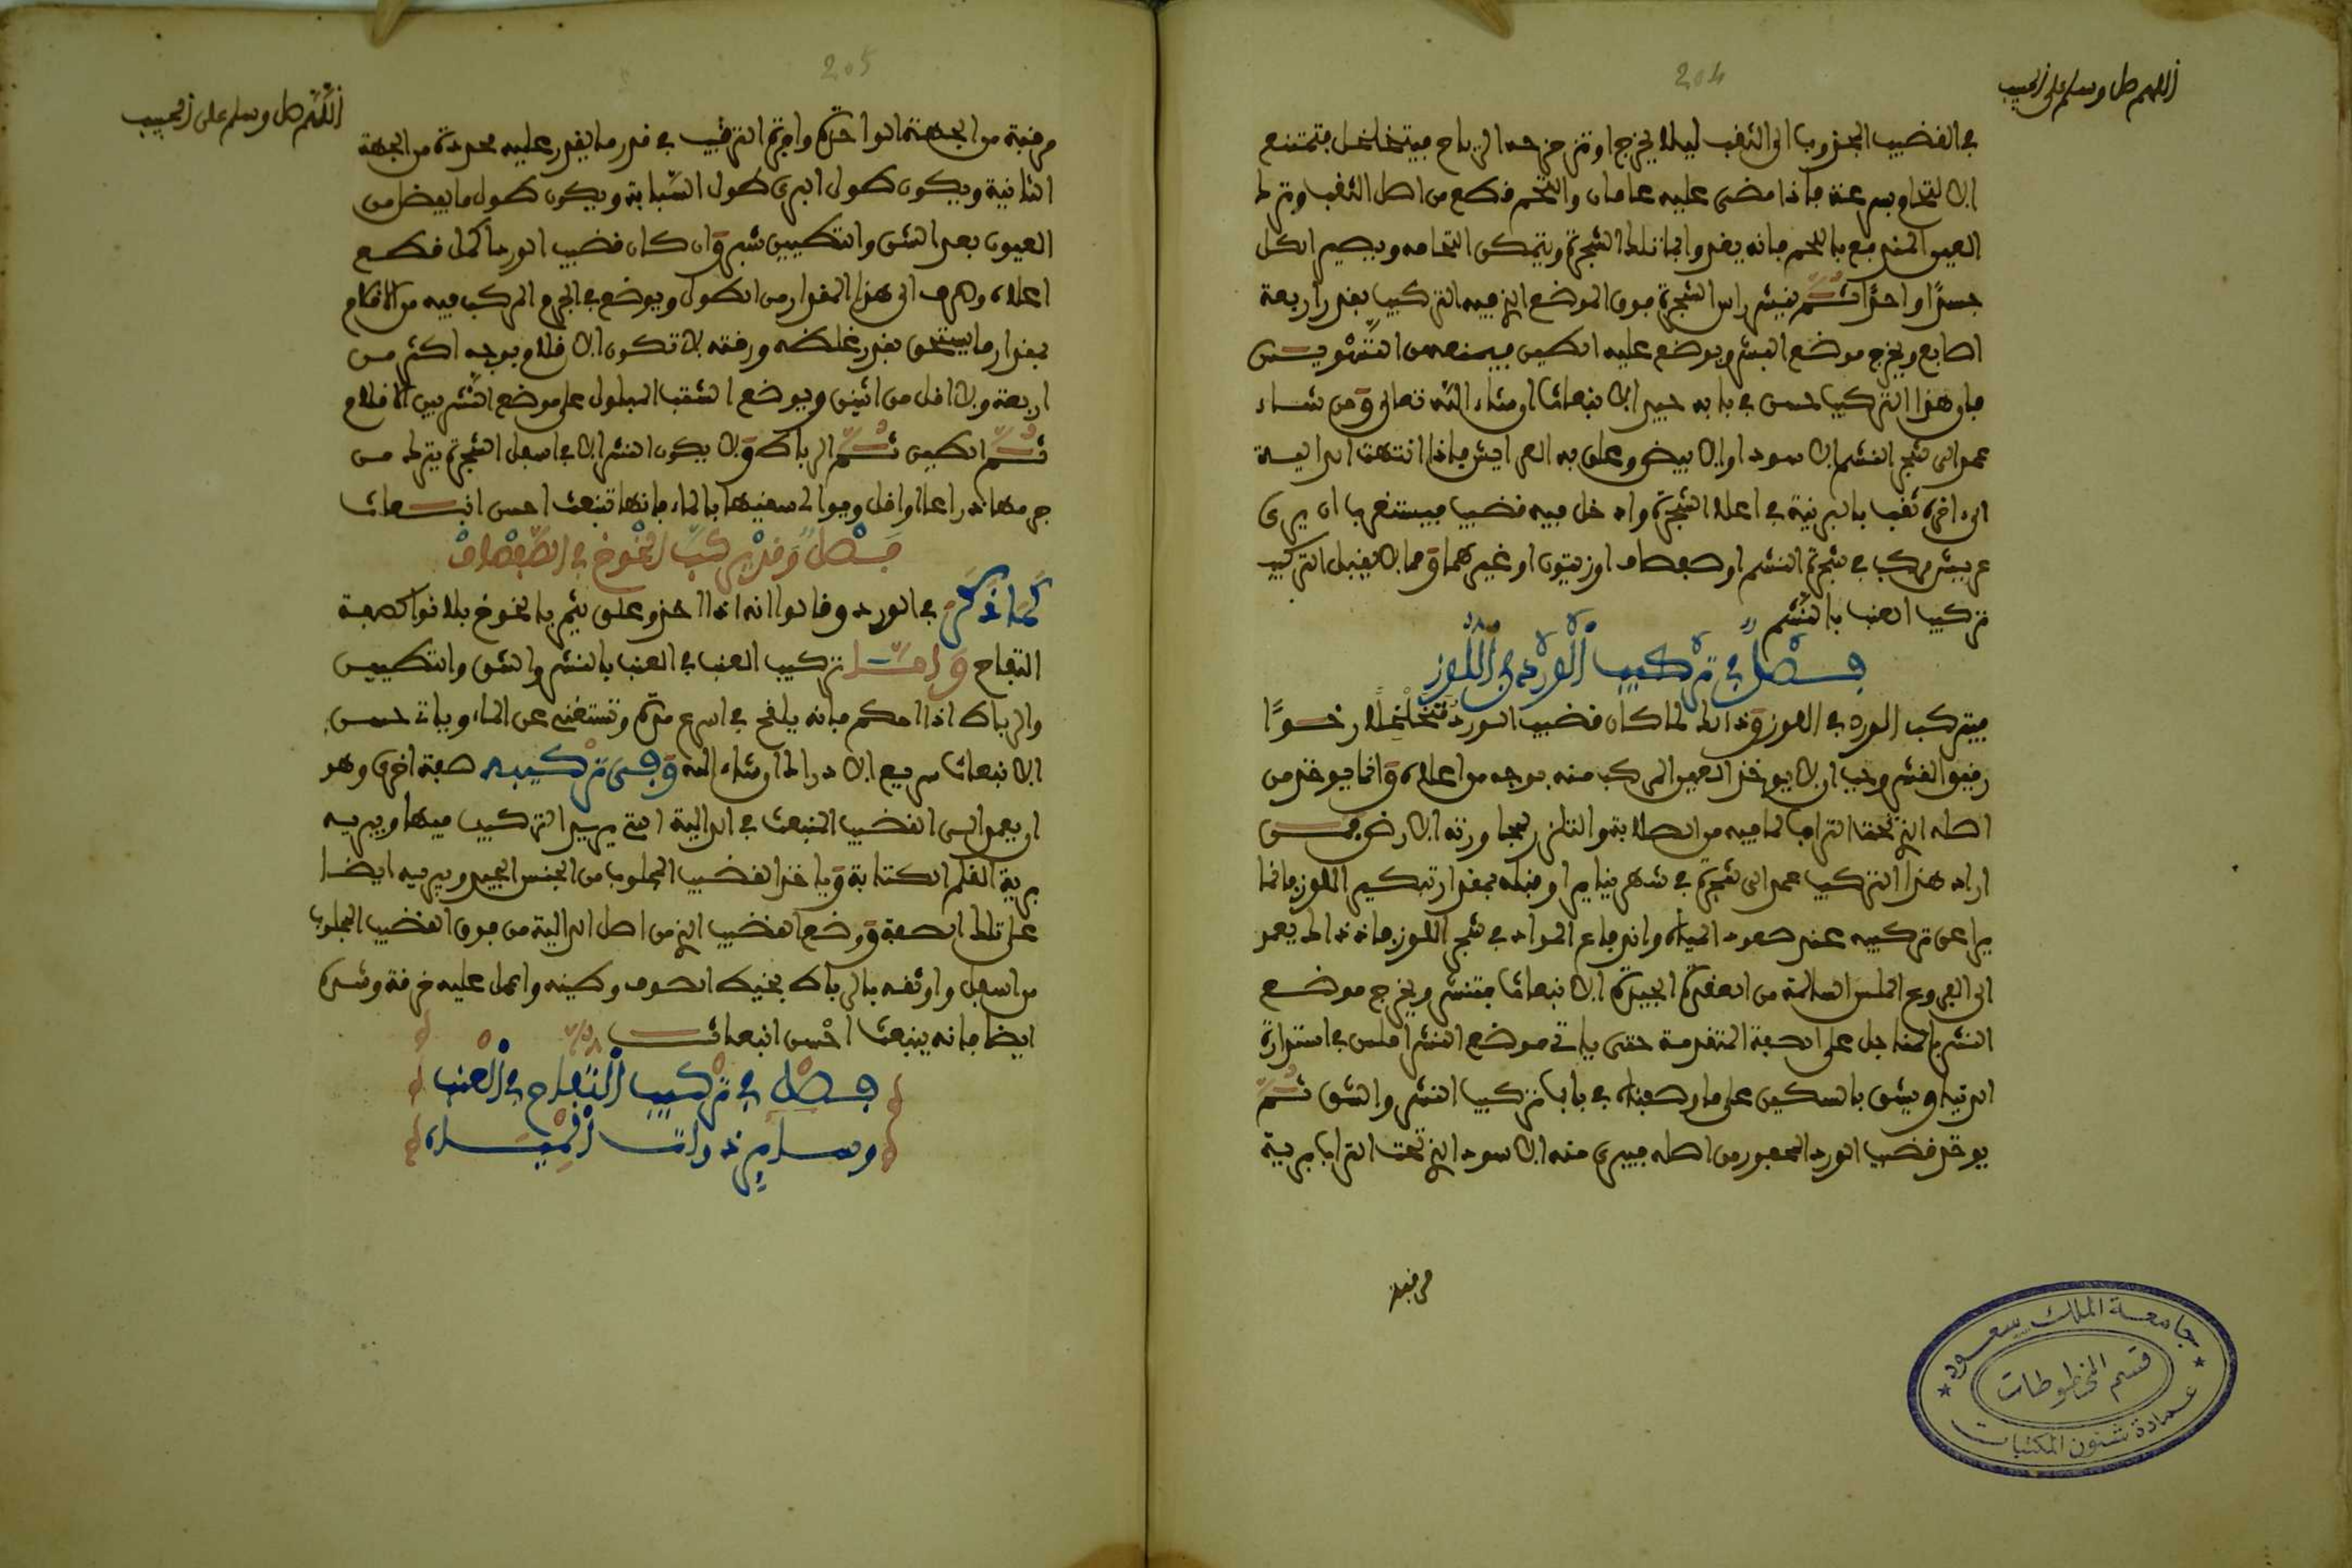 اللهم صل وسلم على الحبيب
204
في القضيب المجذوب الى الثقب ليلا يخرج او تزحزحه الرياح فيتخلخل فتمتنع
الالتحام بسرعة فاذا مضى عليه عامان والتحم قطع من اصل الثقب وترك
العيون المندفع باللحم فانه يغذو تلك الشجرة ويتمكن التحامه ويصير الكل
جسدا واحدا ثم ينشر راس الشجرة فوق الموضع الذي فيه التركيب بقدر اربعة
اصابع ويخرج موضع النشر ويوضع عليه الطين فيمنعه من التسويس
فان هذا التركيب حسن في بابه جيد الانبعاث ان شاء الله تعالى ومن شاء
عمد الى شجر النشم الاسود او الابيض وعلق به العرايش فاذا انتهت الدالية
الى اخره ثقب بالبرنية في اعلا الشجرة وادخل فيه قضيب فيستغرب ان يرى
عريش مركب في شجرة النشم او صفصاف او زيتون او غيرهما ومما لا يقبل التركيب
تركيب العنب بالنشم
فصل في تركيب الورد في اللوز
فيتركب الورد في اللوز وذلك لما كان قضيب الورد متخلخلا رخوا
رقيق القشر وجب ان لا يوخذ العيون المركب منه بوجه من اعلاه وانما يوخذ من
اصله الذي تحت التراب لما فيه من الصلابة والتلزز لمجاورته الارض فمن
اراد هذا التركيب عمد الى شجرة في شهر يناير او قبله بمقدار تبكير اللوز فانما
يراعى تركيبه عند صعود المياه واندفاع المواد في شجر اللوز فاذ ذاك يعمد
الى الفروع الملس السالمة من العقد الجيدة الانبعاث فتنشر ويخرج موضع
النشر بالمناجل على الصفة المتقدمة حتى ياتي موضع النشر املس في استدارة
الدنيا ويشق بالسكين على ما وصفناه في باب تركيب النشر والشق ثم
يوخذ قضيب الورد المحفور من اصله فيبرى منه الاسود الذي تحت التراب برية
مرقبة
جامعة الملك سعود
قسم المخطوطات
عمادة شئون المكتبات
اللهم صل وسلم على الحبيب
205
مرقبة من الجهة الواحدة وافرة الترقيب في قدر ما يقدر عليه محددة من الجهة
الثانية ويكون طول البري طول السبابة ويكون طول ما يفضل من
العيون بعد الشق والتطيين شبر وان كان قضيب الورد اكمل قطع
اعلاه وصرف الى هذا المقدار من الطول ويوضع في الجرح المركب فيه من الاقلام
بمقدار ما يستحق بقدر غلظه ورقته لا تكون الاقلام بوجه اكثر من
اربعة ولا اقل من اثنين ويوضع الشقب المبلول على موضع النشر بين الاقلام
ثم الطين ثم الرباط ولا يكون النشر الا في اسفل الشجرة يترك من
جرمها ذراعا او اقل ويوالى سقيها بالماء فانها تنبعث احسن انبعاث
فصل وقد يركب الخوخ في الصفصاف
كما ذكر في الورد وقالوا انه اذا اخذ وعلق يثمر بالخوخ بلا نوا كصفة
التفاح واما تركيب العنب في العنب بالنشر والشق والتطيين
والرباط اذا احكم فانه يلقح في اسرع مدة وتستغنى عن الماء ويات حسن
الانبعاث سريع الادراك ان شاء الله وفي تركيبه صفة اخرى وهو
ان يعمد الى القضيب المنبعث في الدالية التي يريد التركيب فيها ويبريه
برية القلم الكتابة وياخذ القضيب المجلوب من الجنس الجيد ويبريه ايضا
على تلك الصفة ويضع القضيب الذي من اصل الدالية من فوق القضيب المجلوب
من اسفل واوثقه بالرباط بخيط الصوف وطينه واعمل عليه خرقة وشده
ايضا فانه ينبعث احسن انبعاث
فصل في تركيب التفاح في العنب
وساير ذوات المياه